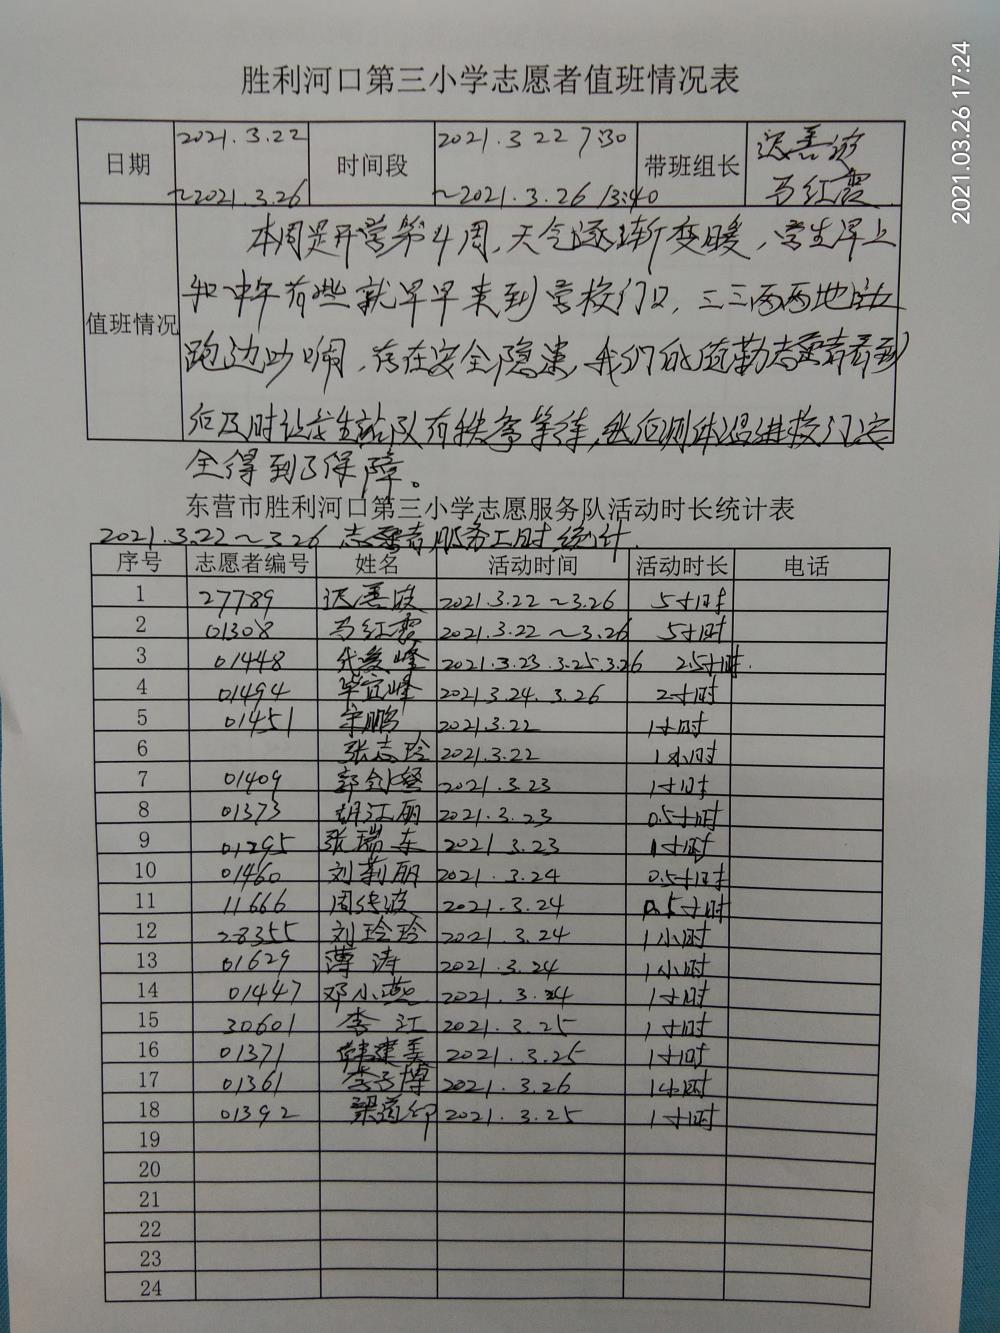 2021.03.26 17:24
胜利河口第三小学志愿者值班情况表
日期 2021.3.22 ~2021.3.26 时间段 2021.3.22 7:30 ~2021.3.26 13:40 带班组长 马红霞
值班情况
本周是开学第4周,天气逐渐变暖,学生早上
和中午有些就早早来到学校门口,三三两两地
跑边吵闹,存在安全隐患,我们的值勤志愿者看到
后及时让学生站队有秩序等待,进校门安
全得到了保障。
东营市胜利河口第三小学志愿服务队活动时长统计表
2021.3.22~3.26 志愿者服务工时统计.
序号 志愿者编号 姓名 活动时间 活动时长 电话
1 27789 2021.3.22~3.26 5小时
2 01308 马红霞 2021.3.22~3.26 5小时
3 01448 2021.3.23.3.25.3.26 2.5小时.
4 01494 毕宜峰 2021.3.24.3.26 2小时
5 01451 宋鹏 2021.3.22 1小时
6 张志玲 2021.3.22 1小时
7 01409 2021.3.23 1小时
8 01373 胡江丽 2021.3.23 0.5小时
9 01295 张瑞东 2021.3.23 1小时
10 01460 刘莉丽 2021.3.24 0.5小时
11 11666 2021.3.24 0.5小时
12 28355 刘玲玲 2021.3.24 1小时
13 01629 薄涛 2021.3.24 1小时
14 01447 邓小燕 2021.3.24 1小时
15 30601 李江 2021.3.25 1小时
16 01371 韩建美 2021.3.25 1小时
17 01361 2021.3.26 1小时
18 01392 2021.3.25 1小时
19
20
21
22
23
24